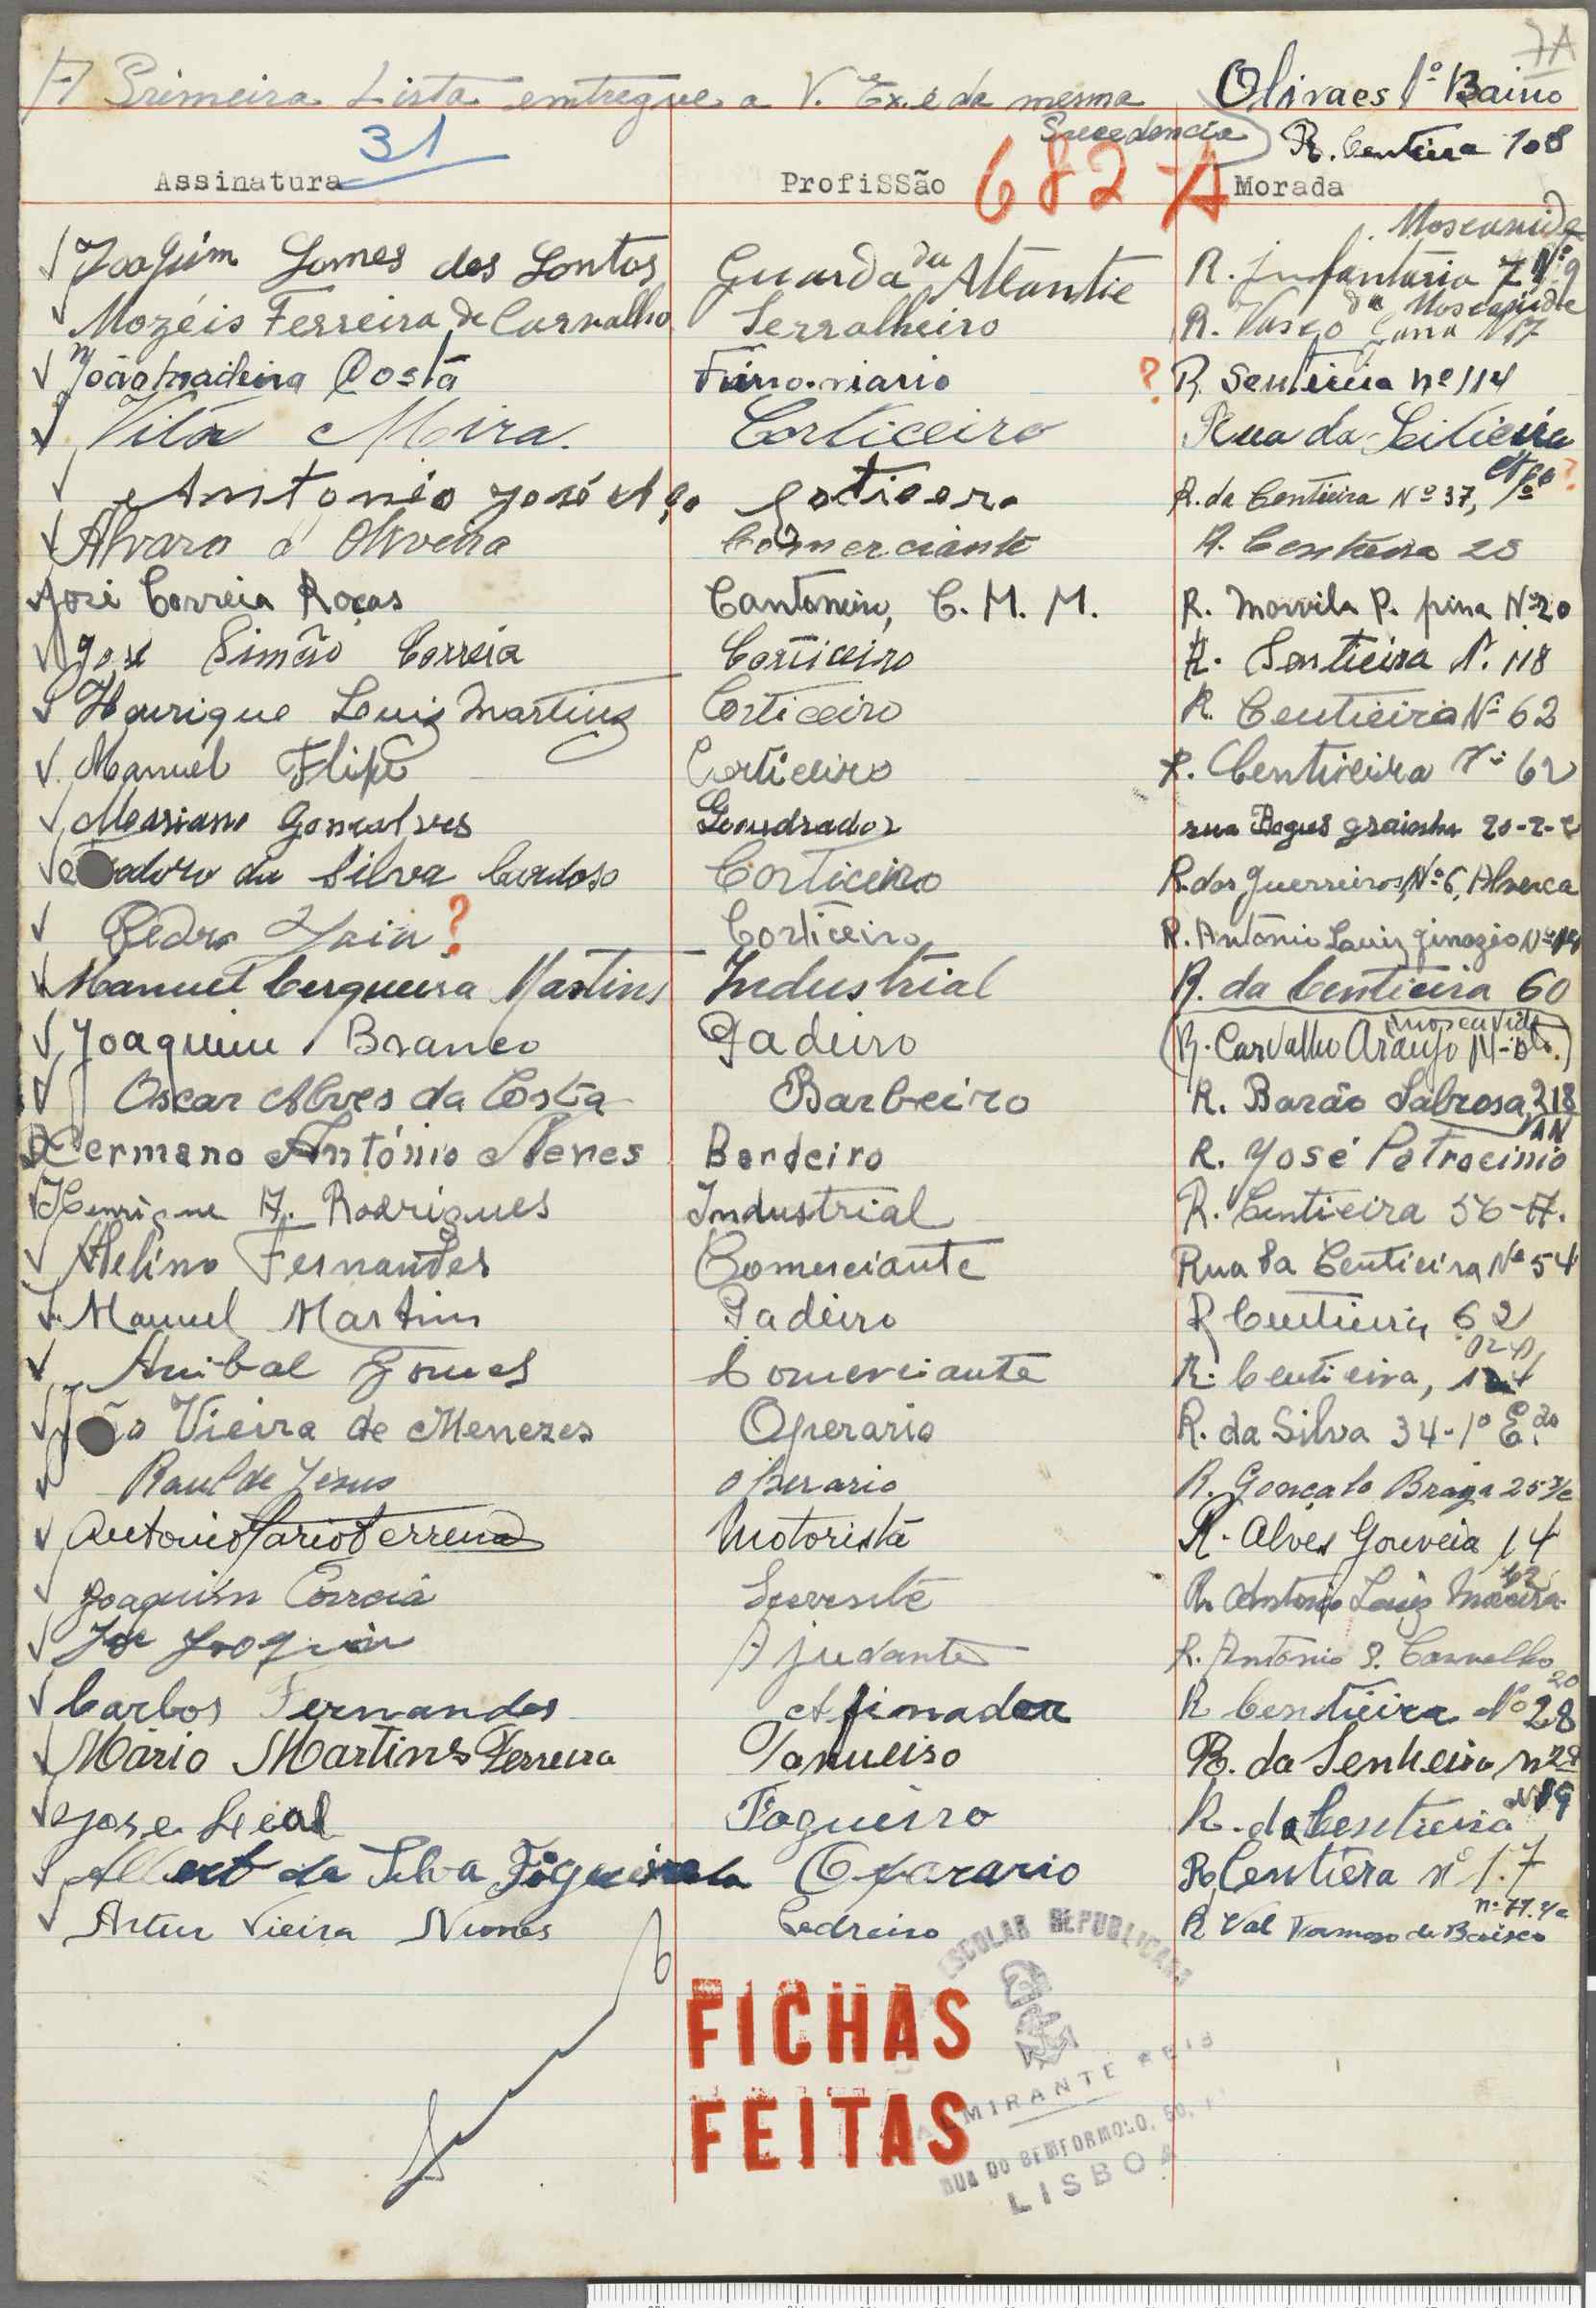 7A
A Primeira Lista entregue a V. Ex.ê da mesma
Procedencia
Olivaes 1º Bairro
R. Centieira 108
31
682-A
Assinatura ProfiSSão Morada
Joaquim Gomes dos Santos Guarda da Atlantic R. Infantaria 7 Nº 9 Moscavide
Mozéis Ferreira de Carvalho Serralheiro R. Vasco da Gama Nº 17 Moscavide
João Madeira Costa Ferro-viario ? R. Sentieira nº 114
Vitor Mira Corticeiro Rua da
Antonio José R. da Centieira Nº 37, 1º ?
Alvaro d'Oliveira Comerciante R. Centieira 28
José Correia Roças Cantoneiro, C. M. M. R. Marvila P. pina Nº 20
José Simão Correia Corticeiro R. Sentieira N. 118
Henrique Luiz Martins Corticeiro R. Centieira Nº 62
Manuel Flipe Corticeiro R. Centieira Nº 62
Mariano Gonçalves rua 20-2-
da Silva Cardoso Corticeiro R. dos Guerreiros, Nº 6, Alverca
Pedro ? Corticeiro R. António Luiz
Manuel Cerqueira Martins Industrial R. da Centieira 60
Joaquim Branco Padeiro (R. Carvalho Araujo Moscavide)
Oscar Alves da Costa Barbeiro R. Barão Sabrosa, 218
Germano António Neves R. José Patrocinio AN
Henrique A. Rodrigues Industrial R. Centieira 56-A.
Avelino Fernandes Comerciante Rua da Centieira Nº 54
Manuel Martins Padeiro R Centieira 62
Anibal Gomes Comerciante R. Centieira,
João Vieira de Menezes Operario R. da Silva 34-1º E.do
Raul de Jesus operario R. Gonçalo Braga 25 r/c
Antonio Ferreira Motorista R. Alves Gouveia 14
Joaquim Correia Servente R. Antonio Luiz Moreira 62
José Joaquim Ajudante R. Antonio S. Carvalho 20
Carlos Fernandes Afinador R Centieira Nº 28
Mário Martins Ferreira Tanueiro R. da Senheira nº 28
José Leal Fogueiro R. da Centieira Nº 89
Albert da Silva Figueireda Operario R. Centiera nº 1.7
Artur Vieira Nunes Pedreiro R Val Formoso de Baixo nº 77.
ESCOLAR REPUBLICANO
ALMIRANTE REIS
RUA DO BEMFORMOSO, 50, 1º
LISBOA
FICHAS
FEITAS